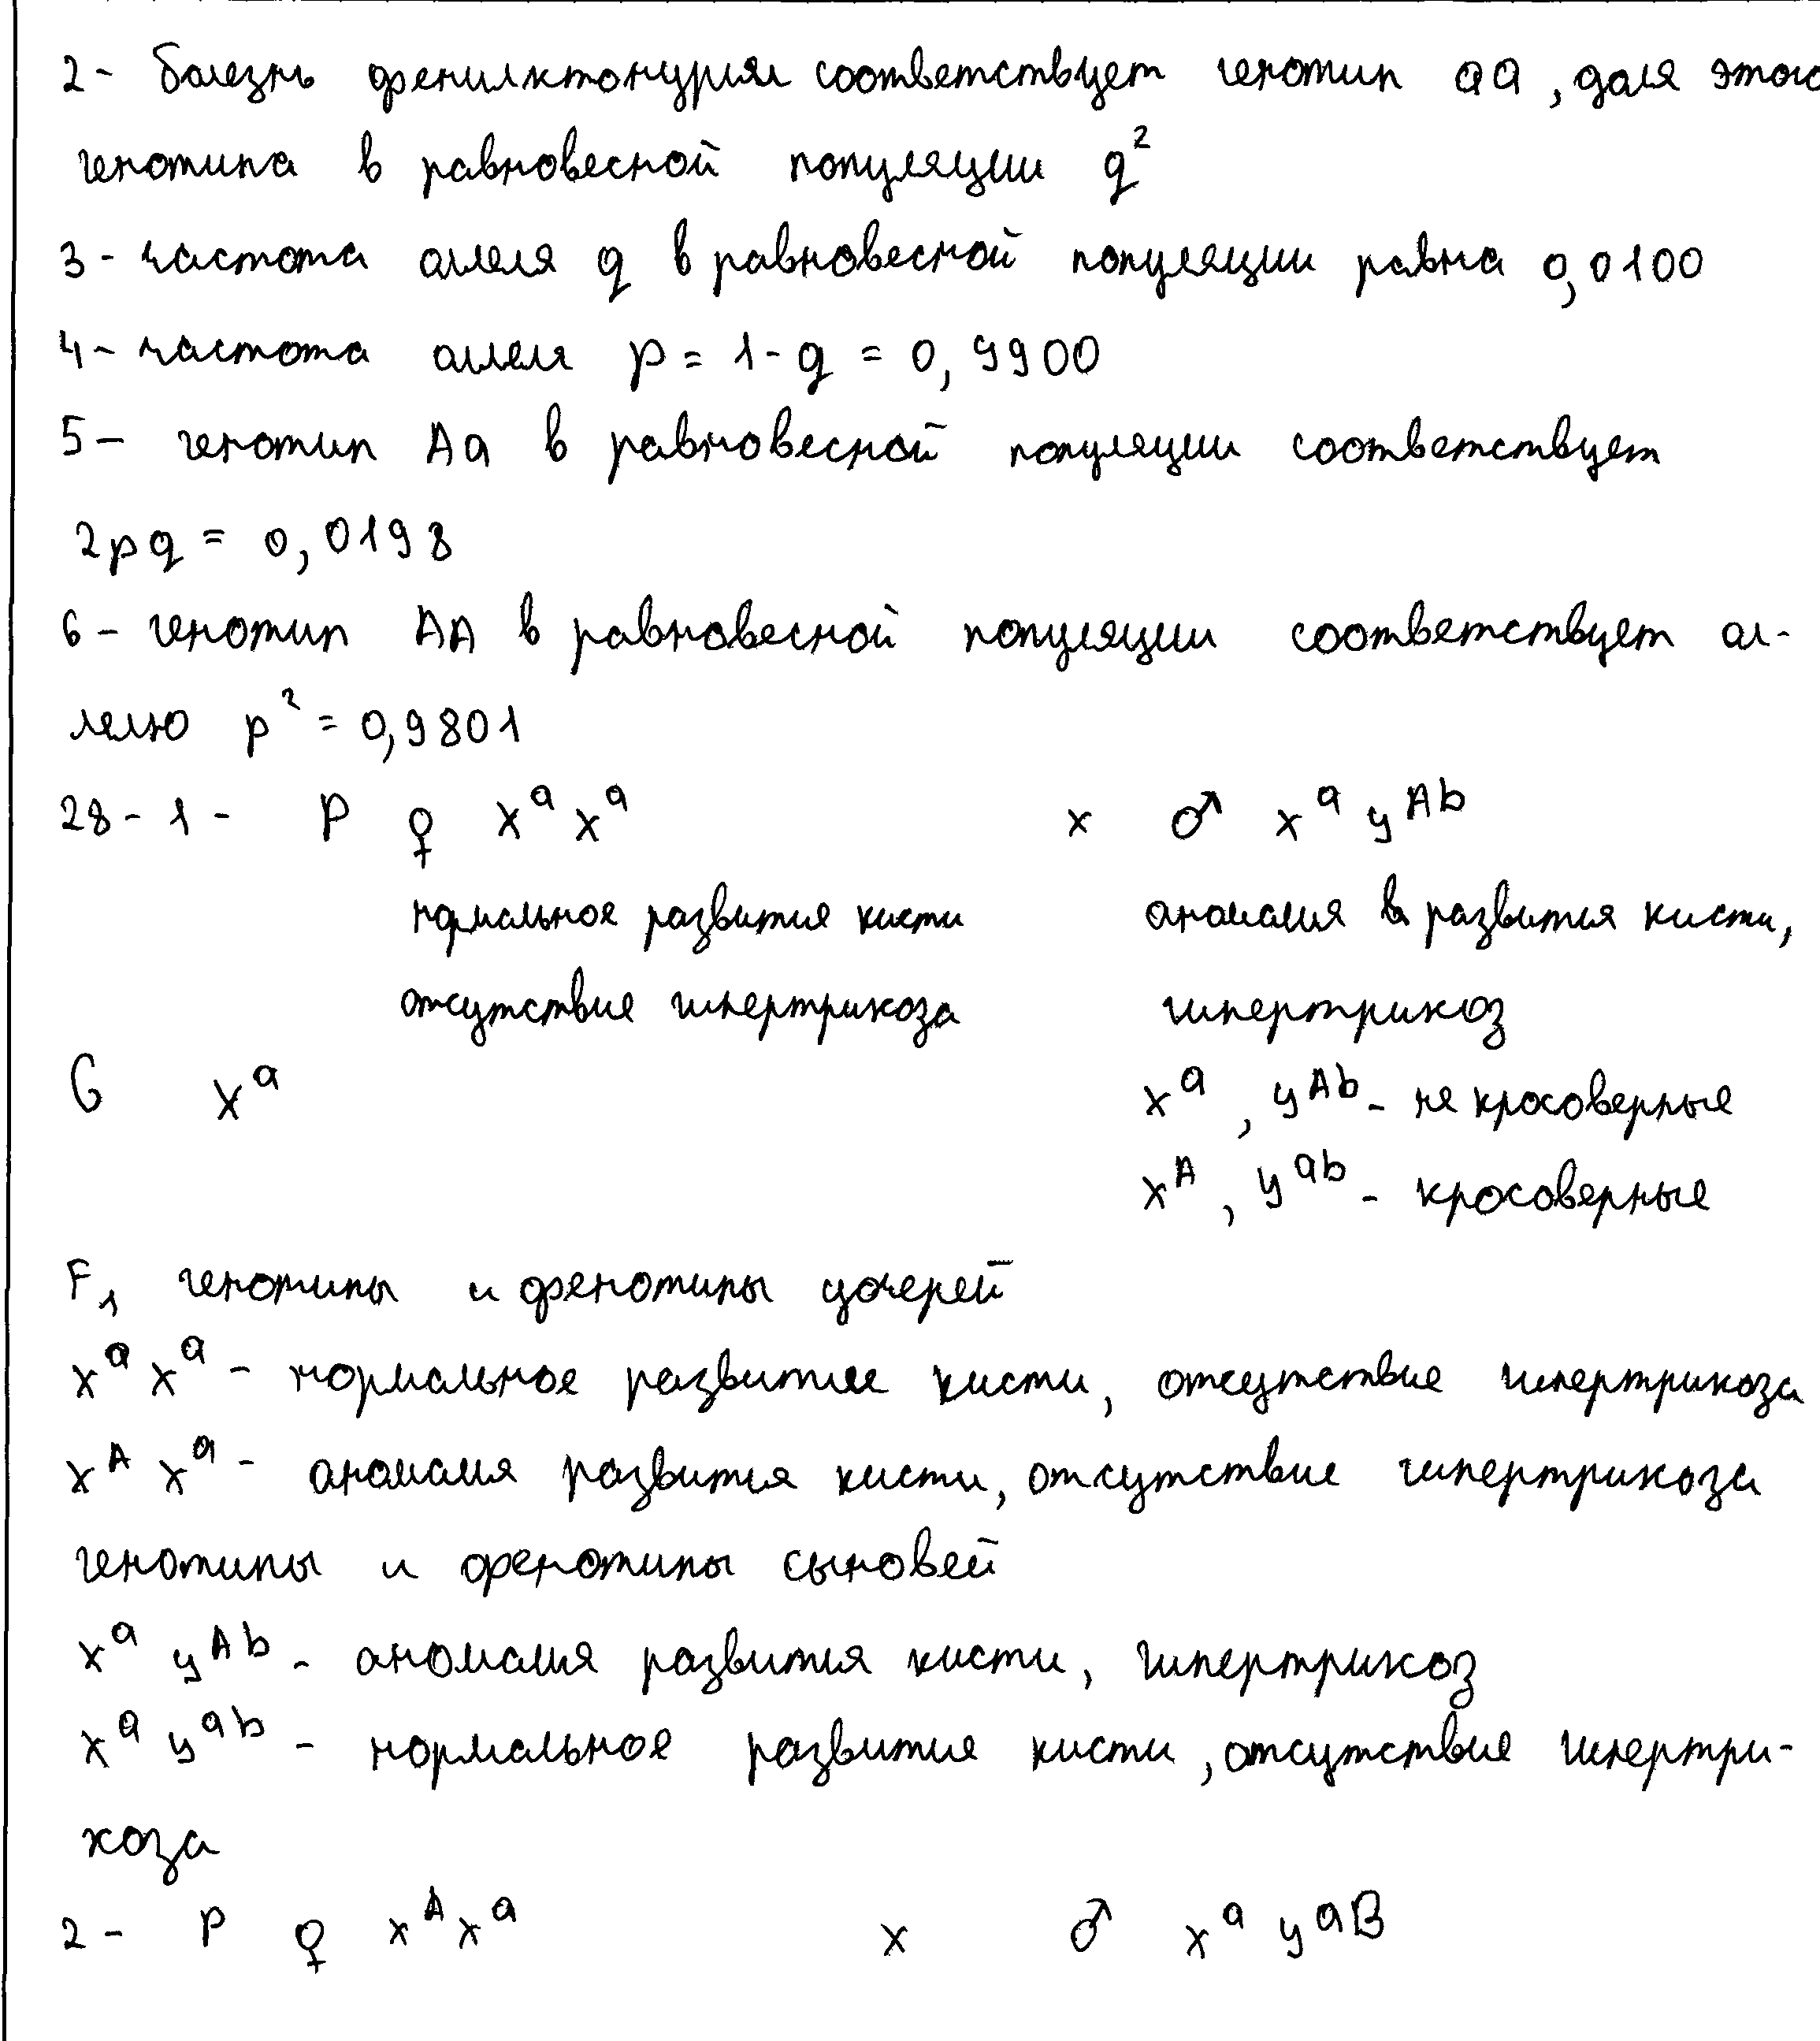 2 - болезнь фенилктонурия соответствует генотип aa, доля этого
генотипа в равновесной популяции q²
3 - частота аллеля q в равновесной популяции равна 0,0100
4 - частота аллеля p = 1 - q = 0,9900
5 - генотип Aa в равновесной популяции соответствует
2pq = 0,0198
6 - генотип AA в равновесной популяции соответствует ал-
лелю p² = 0,9801
28 - 1 - P ♀ xᵃ xᵃ x ♂ xᵃ yᴬᵇ
нормальное развития кисти аномалия в развития кисти,
отсутствие гипертрикоза гипертрикоз
G xᵃ xᵃ, yᴬᵇ - не кросоверные
xᴬ, yᵃᵇ - кросоверные
F₁ генотипы и фенотипы дочерей
xᵃ xᵃ - нормальное развитие кисти, отсутствие гипертрикоза
xᴬ xᵃ - аномалия развития кисти, отсутствие гипертрикоза
генотипы и фенотипы сыновей
xᵃ yᴬᵇ - аномалия развития кисти, гипертрикоз
xᵃ yᵃᵇ - нормальное развития кисти, отсутствие гипертри-
коза
2 - P ♀ xᴬ xᵃ x ♂ xᵃ yᵃᴮ